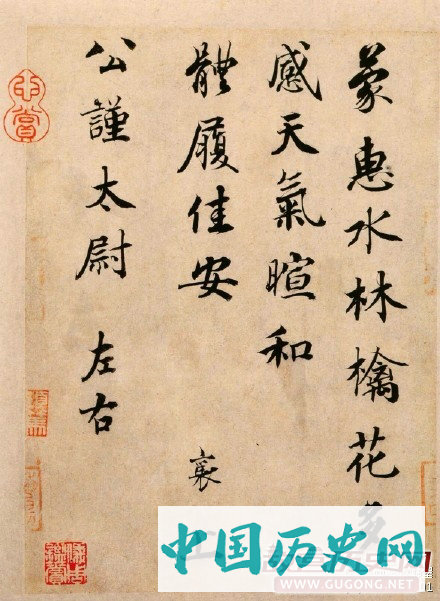 蒙惠水林檎花
感天氣暄和
體履佳安 襄
公謹太尉 左右
中国历史网
WWW.GUGONG.NET